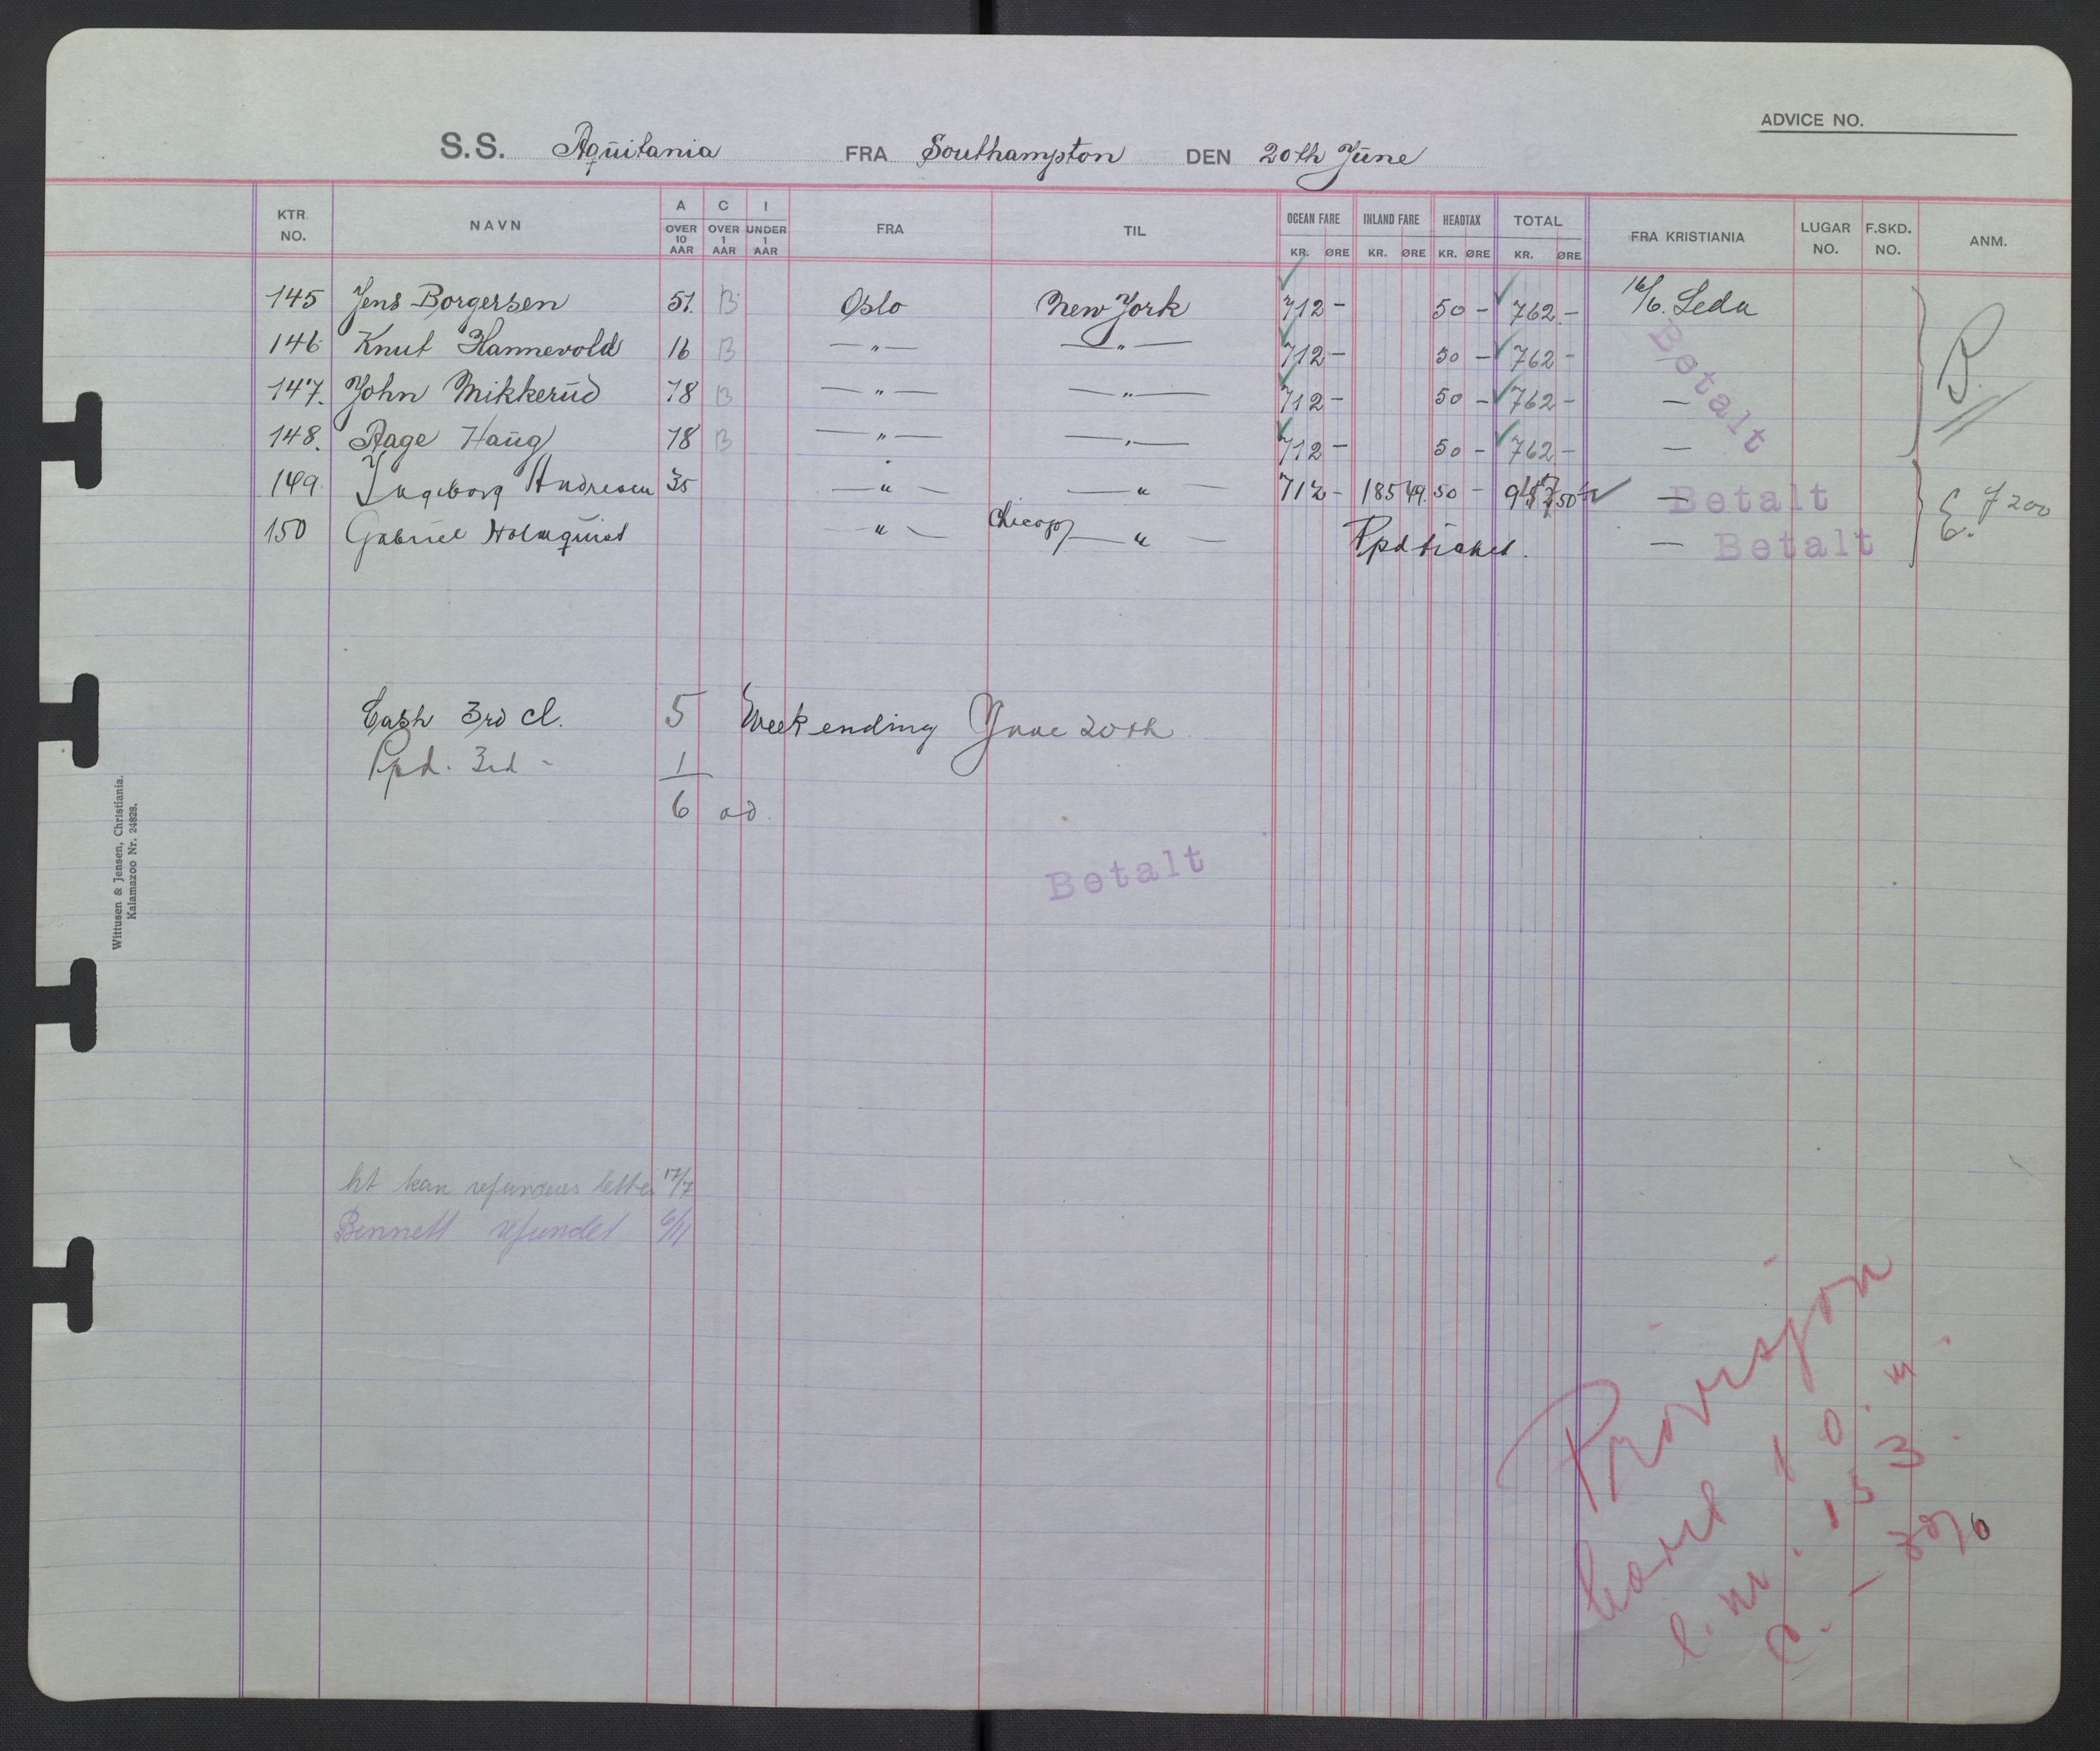 ADVICE NO.
S.S. Aquitania FRA Southampton DEN 20th June
KTR. NO. NAVN A OVER 10 AAR C OVER 1 AAR I UNDER 1 AAR FRA TIL OCEAN FARE KR. ØRE INLAND FARE KR. ØRE HEADTAX KR. ØRE TOTAL KR. ØRE FRA KRISTIANIA LUGAR NO. F.SKD. NO. ANM.
145 Jens Borgersen 51. B Oslo New York 712 - 50 - 762 - 16/6. Leda
146 Knut Hannevold 16 B - " - - " - 712 - 50 - 762 -
Betalt
P.
147. John Mikkerud 18 B - " - - " - 712 - 50 - 762 - -
148. Aage Haug 18 B - " - - " - 712 - 50 - 762 - -
149. Ingeborg Andresen 35 - " - - " - 712 - 185 49. 50 - - Betalt
E. 7200
150 Gabriel Holmquist - " - Chicago - " - Ppd ticket. - Betalt
Cash 3rd cl. 5 Week ending June 20th
Ppd. 3rd - 1
6 ad.
Betalt
Wittusen & Jensen, Christiania.
Kalamazoo Nr. 24828.
kan refunderes 17/7
Bennett refundet 6/11
Provisjon
10.
153.